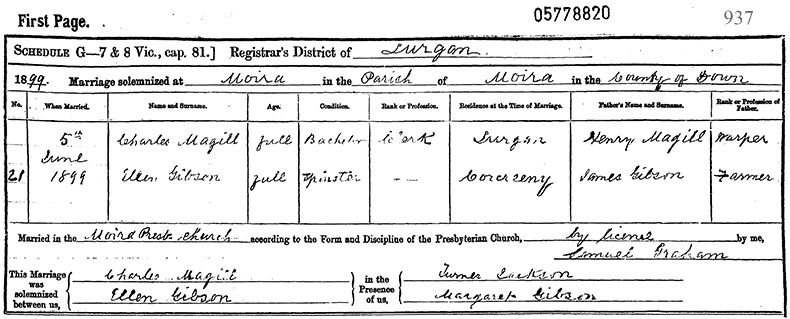 First Page. 05778820 937
SCHEDULE G—7 & 8 Vic., cap. 81.] Registrar's District of Lurgan
1899. Marriage solemnized at Moira in the Parish of Moira in the County of Down
No. When Married. Name and Surname. Age. Condition. Rank or Profession. Residence at the Time of Marriage. Father's Name and Surname. Rank or Profession of Father.
5th Charles Magill full Bachelor Clerk Lurgan Henry Magill Warper
June
21 1899 Ellen Gibson full Spinster — — James Gibson Farmer
Married in the Moira Presb. Church according to the Form and Discipline of the Presbyterian Church, by licence by me,
Samuel Graham
This Marriage was solemnized between us, Charles Magill in the Presence of us, Turner Jackson
Ellen Gibson Margaret Gibson